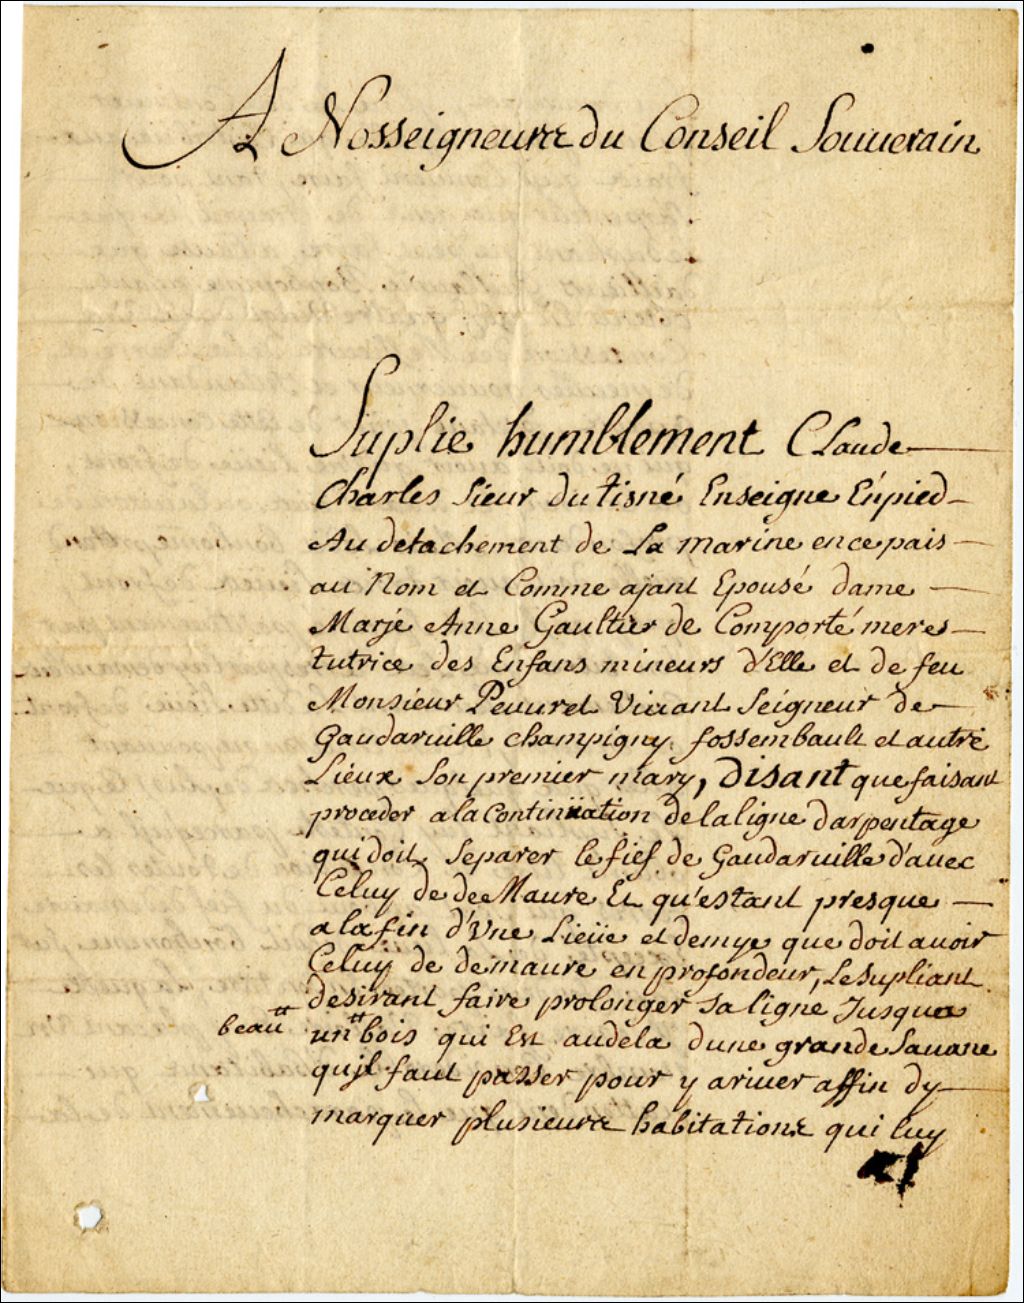 A Nosseigneurs du Conseil Souuerain
Suplie humblement Claude
Charles Sieur dutisné Enseigne Enpied
Au detachement de La marine ence pais
au Nom et Comme ajant Epousé dame
Marje Anne Gaultier de Comporté mere
tutrice des Enfans mineurs d'Elle et de feu
Monsieur Peuuret Viuant Seigneur de
Gaudaruille champigny fossembault et autre
Lieux Son premier mary, disant que faisant
proceder a la Continuation de la ligne darpentage
qui doit Separer le fief de Gaudaruille d'auec
Celuy de de Maure Et qu'estant presque
a la fin d'Vne Lieüe et demye que doit auoir
Celuÿ de demaure en profondeur, Le supliant
desirant faire prolonger sa ligne Jusque a
beau
un bois qui Est audela dune grande Sauane
qujl faut passer pour y ariuer affin dy
marquer plusieurs habitations qui luy